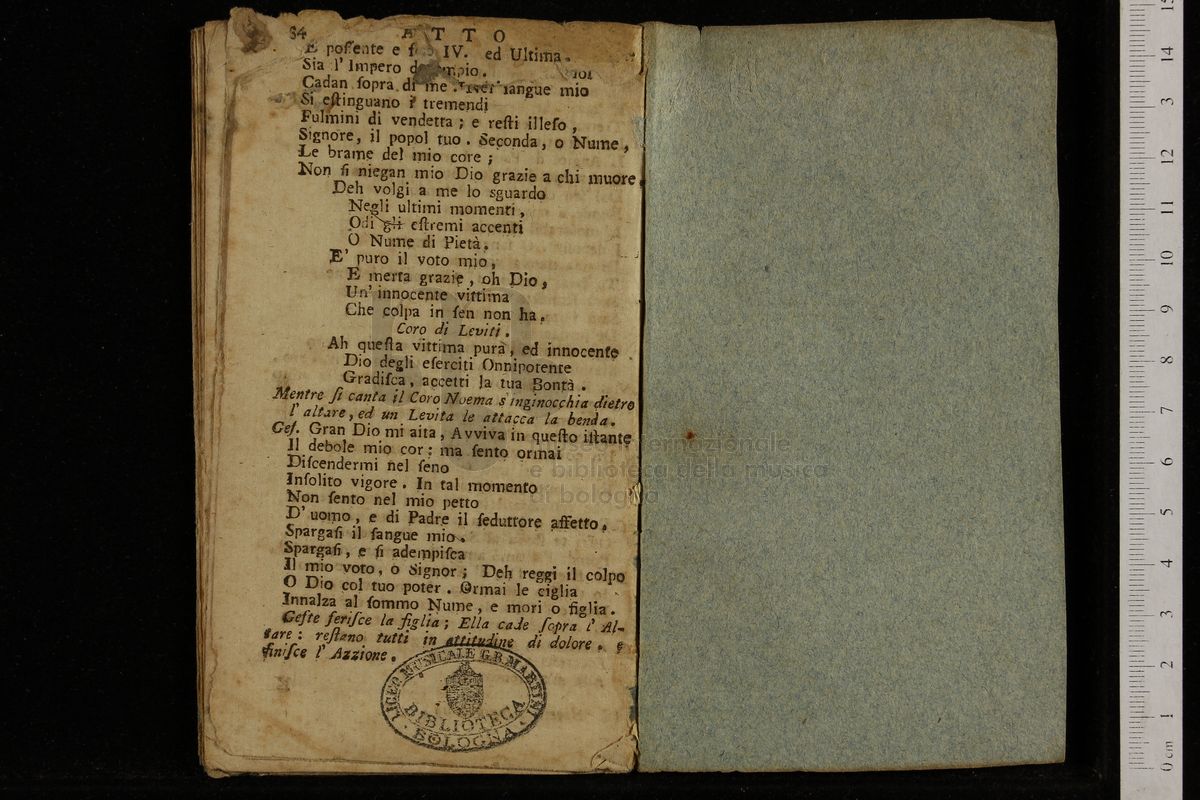 34 ATTO
E poſſente e IV. ed Ultima.
Sia l' Impero
Cadan ſopra di me ſangue mio
Si eſtinguano i tremendi
Fulmini di vendetta; e reſti illeſo,
Signore, il popol tuo. Seconda, o Nume,
Le brame del mio core;
Non ſi niegan mio Dio grazie a chi muore.
Deh volgi a me lo sguardo
Negli ultimi momenti,
Odi gli eſtremi accenti
O Nume di Pietà.
E' puro il voto mio,
E merta grazie, oh Dio,
Un' innocente vittima
Che colpa in ſen non ha.
Coro di Leviti.
Ah queſta vittima pura, ed innocente
Dio degli eſerciti Onnipotente
Gradiſca, accetti la tua Bontà.
Mentre ſi canta il Coro Noema s'inginocchia dietro
l' altare, ed un Levita le attacca la benda.
Geſ. Gran Dio mi aita, Avviva in queſto iſtante
Il debole mio cor: ma ſento ormai
Diſcendermi nel ſeno
Inſolito vigore. In tal momento
Non ſento nel mio petto
D' uomo, e di Padre il ſeduttore affetto.
Spargaſi il ſangue mio.
Spargaſi, e ſi adempiſca
Il mio voto, o Signor; Deh reggi il colpo
O Dio col tuo poter. Ormai le ciglia
Innalza al ſommo Nume, e mori o figlia.
Gefte feriſce la figlia; Ella cade ſopra l' Al-
tare: reſtano tutti in attitudine di dolore. e
finiſce l' Azzione.
LICEO MUSICALE G.B. MARTINI
BIBLIOTECA
BOLOGNA
internazionale
e biblioteca della musica
di bologna
0 cm 1 2 3 4 5 6 7 8 9 10 11 12 3 14 15